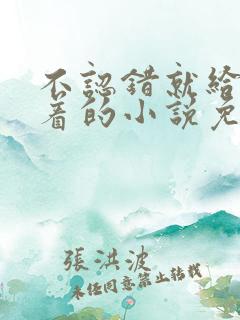 不認錯就給
着的小說免
張洪波
未經同意禁止轉載